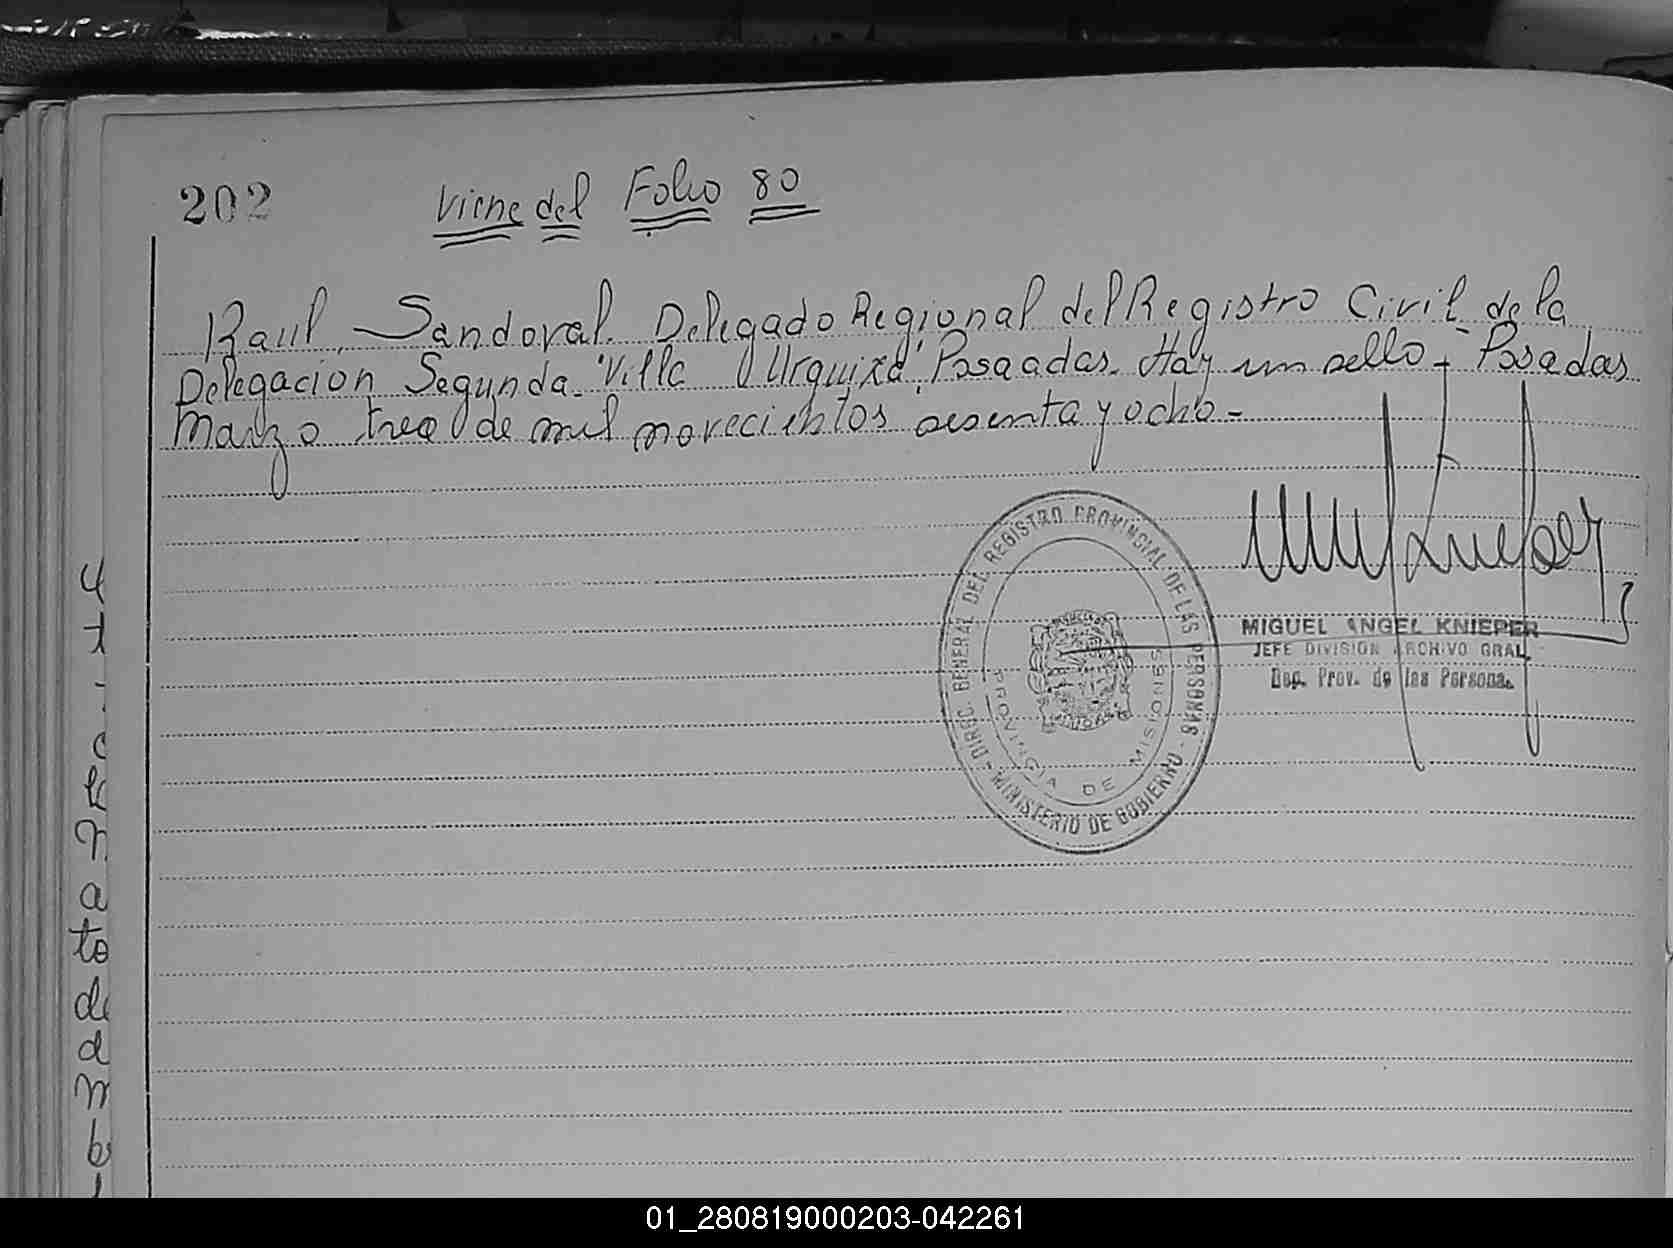 202
Viene del Folio 80
Raul Sandoval. Delegado Regional del Registro Civil de la
Delegacion Segunda. "Villa Urquiza", Posaadas. Hay un sello - Posadas
Marzo tres de mil novecientos sesenta y ocho -
DIREC. GENERAL DEL REGISTRO PROVINCIAL DE LAS PERSONAS - MINISTERIO DE GOBIERNO -
PROVINCIA DE MISIONES
MIGUEL ANGEL KNIEPER
JEFE DIVISION ARCHIVO GRAL.
Reg. Prov. de las Personas
01_280819000203-042261